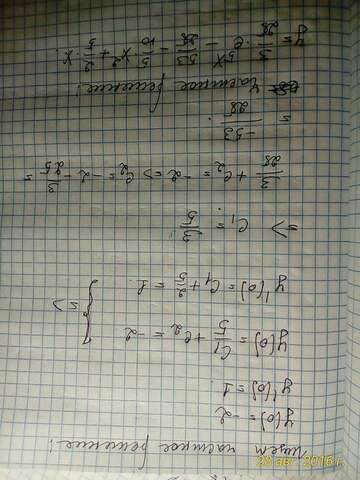 Ищем частное решение!
y(0) = -2
y'(0) = 1.
y(0) = C₁/5 + C₂ = -2
y'(0) = C₁ + 2/5 = 1. } =>
=> C₁ = 3/5
3/25 + C₂ = -2 => C₂ = -2 - 3/25 =
= -53/25.
Частное решение:
y = 3/25 · e^5x - 53/25 - 5/10 · x² + 2/5 · x.